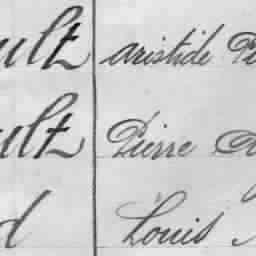 ult aristide Pi
ult Pierre A
d Louis